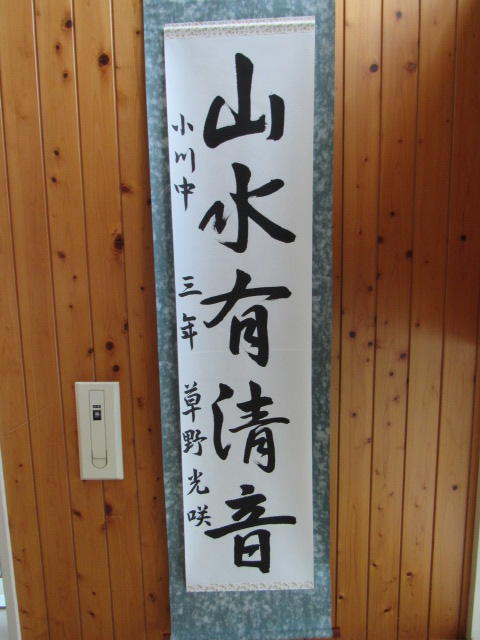 山水有清音
小川中 三年 草野光咲